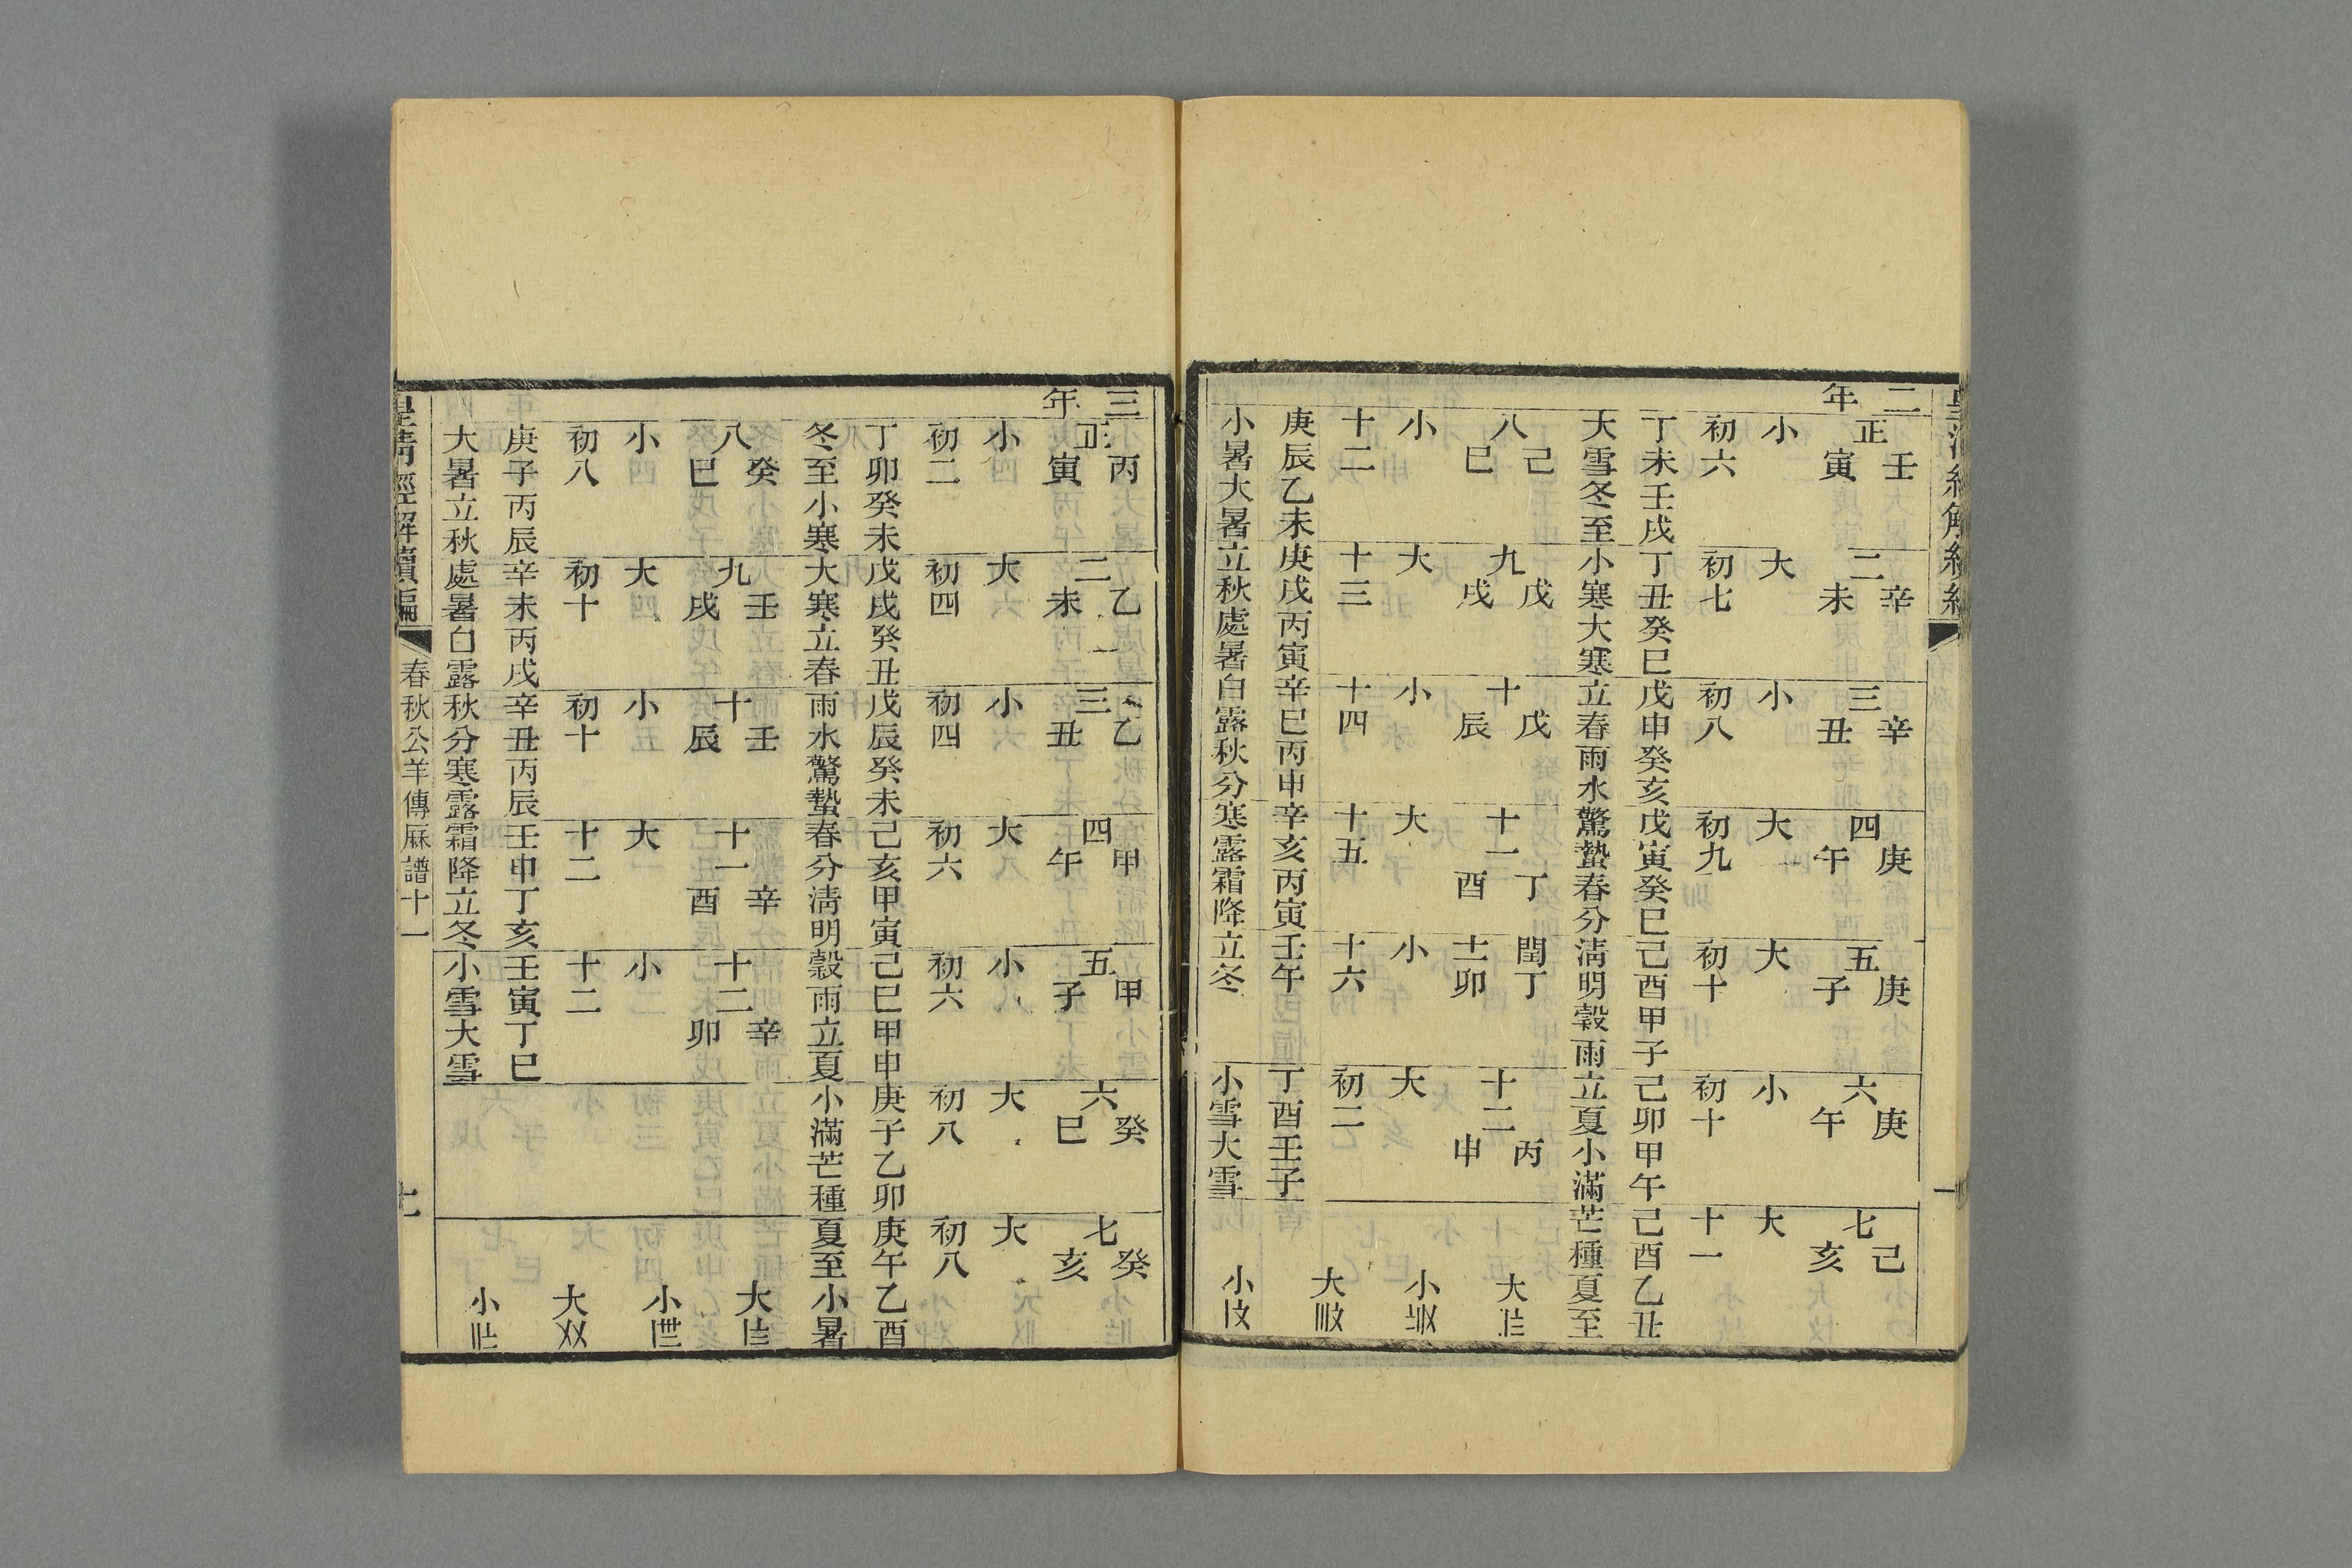 皇清經解續編
二年
正壬寅 二辛未 三辛丑 四庚午 五庚子 六庚午 七己亥
小 大 小 大 大 小 大
初六 初七 初八 初九 初十 初十 十一
丁未壬戌丁丑癸巳戊申癸亥戊寅癸巳己酉甲子己卯甲午己酉乙丑
大雪冬至小寒大寒立春雨水驚蟄春分淸明穀雨立夏小滿芒種夏至
八己巳 九戊戌 十戊辰 十一丁酉 閏十二丁卯 十二丙申 大
小 大 小 大 小 大 小
十二 十三 十四 十五 十六 初二 大
庚辰乙未庚戌丙寅辛巳丙申辛亥丙寅壬午 丁酉壬子
小暑大暑立秋處暑白露秋分寒露霜降立冬 小雪大雪 小
三年
正丙寅 二乙未 三乙丑 四甲午 五甲子 六癸巳 七癸亥
小 大 小 大 小 大 大
初二 初四 初四 初六 初六 初八 初八
丁卯癸未戊戌癸丑戊辰癸未己亥甲寅己巳甲申庚子乙卯庚午乙酉
冬至小寒大寒立春雨水驚蟄春分淸明穀雨立夏小滿芒種夏至小暑
八癸巳 九壬戌 十壬辰 十一辛酉 十二辛卯 大
小 大 小 大 小 小
初八 初十 初十 十二 十二 大
庚子丙辰辛未丙戌辛丑丙辰壬申丁亥壬寅丁巳
大暑立秋處暑白露秋分寒露霜降立冬小雪大雪 小
皇清經解續編 春秋公羊傳厤譜十一 七